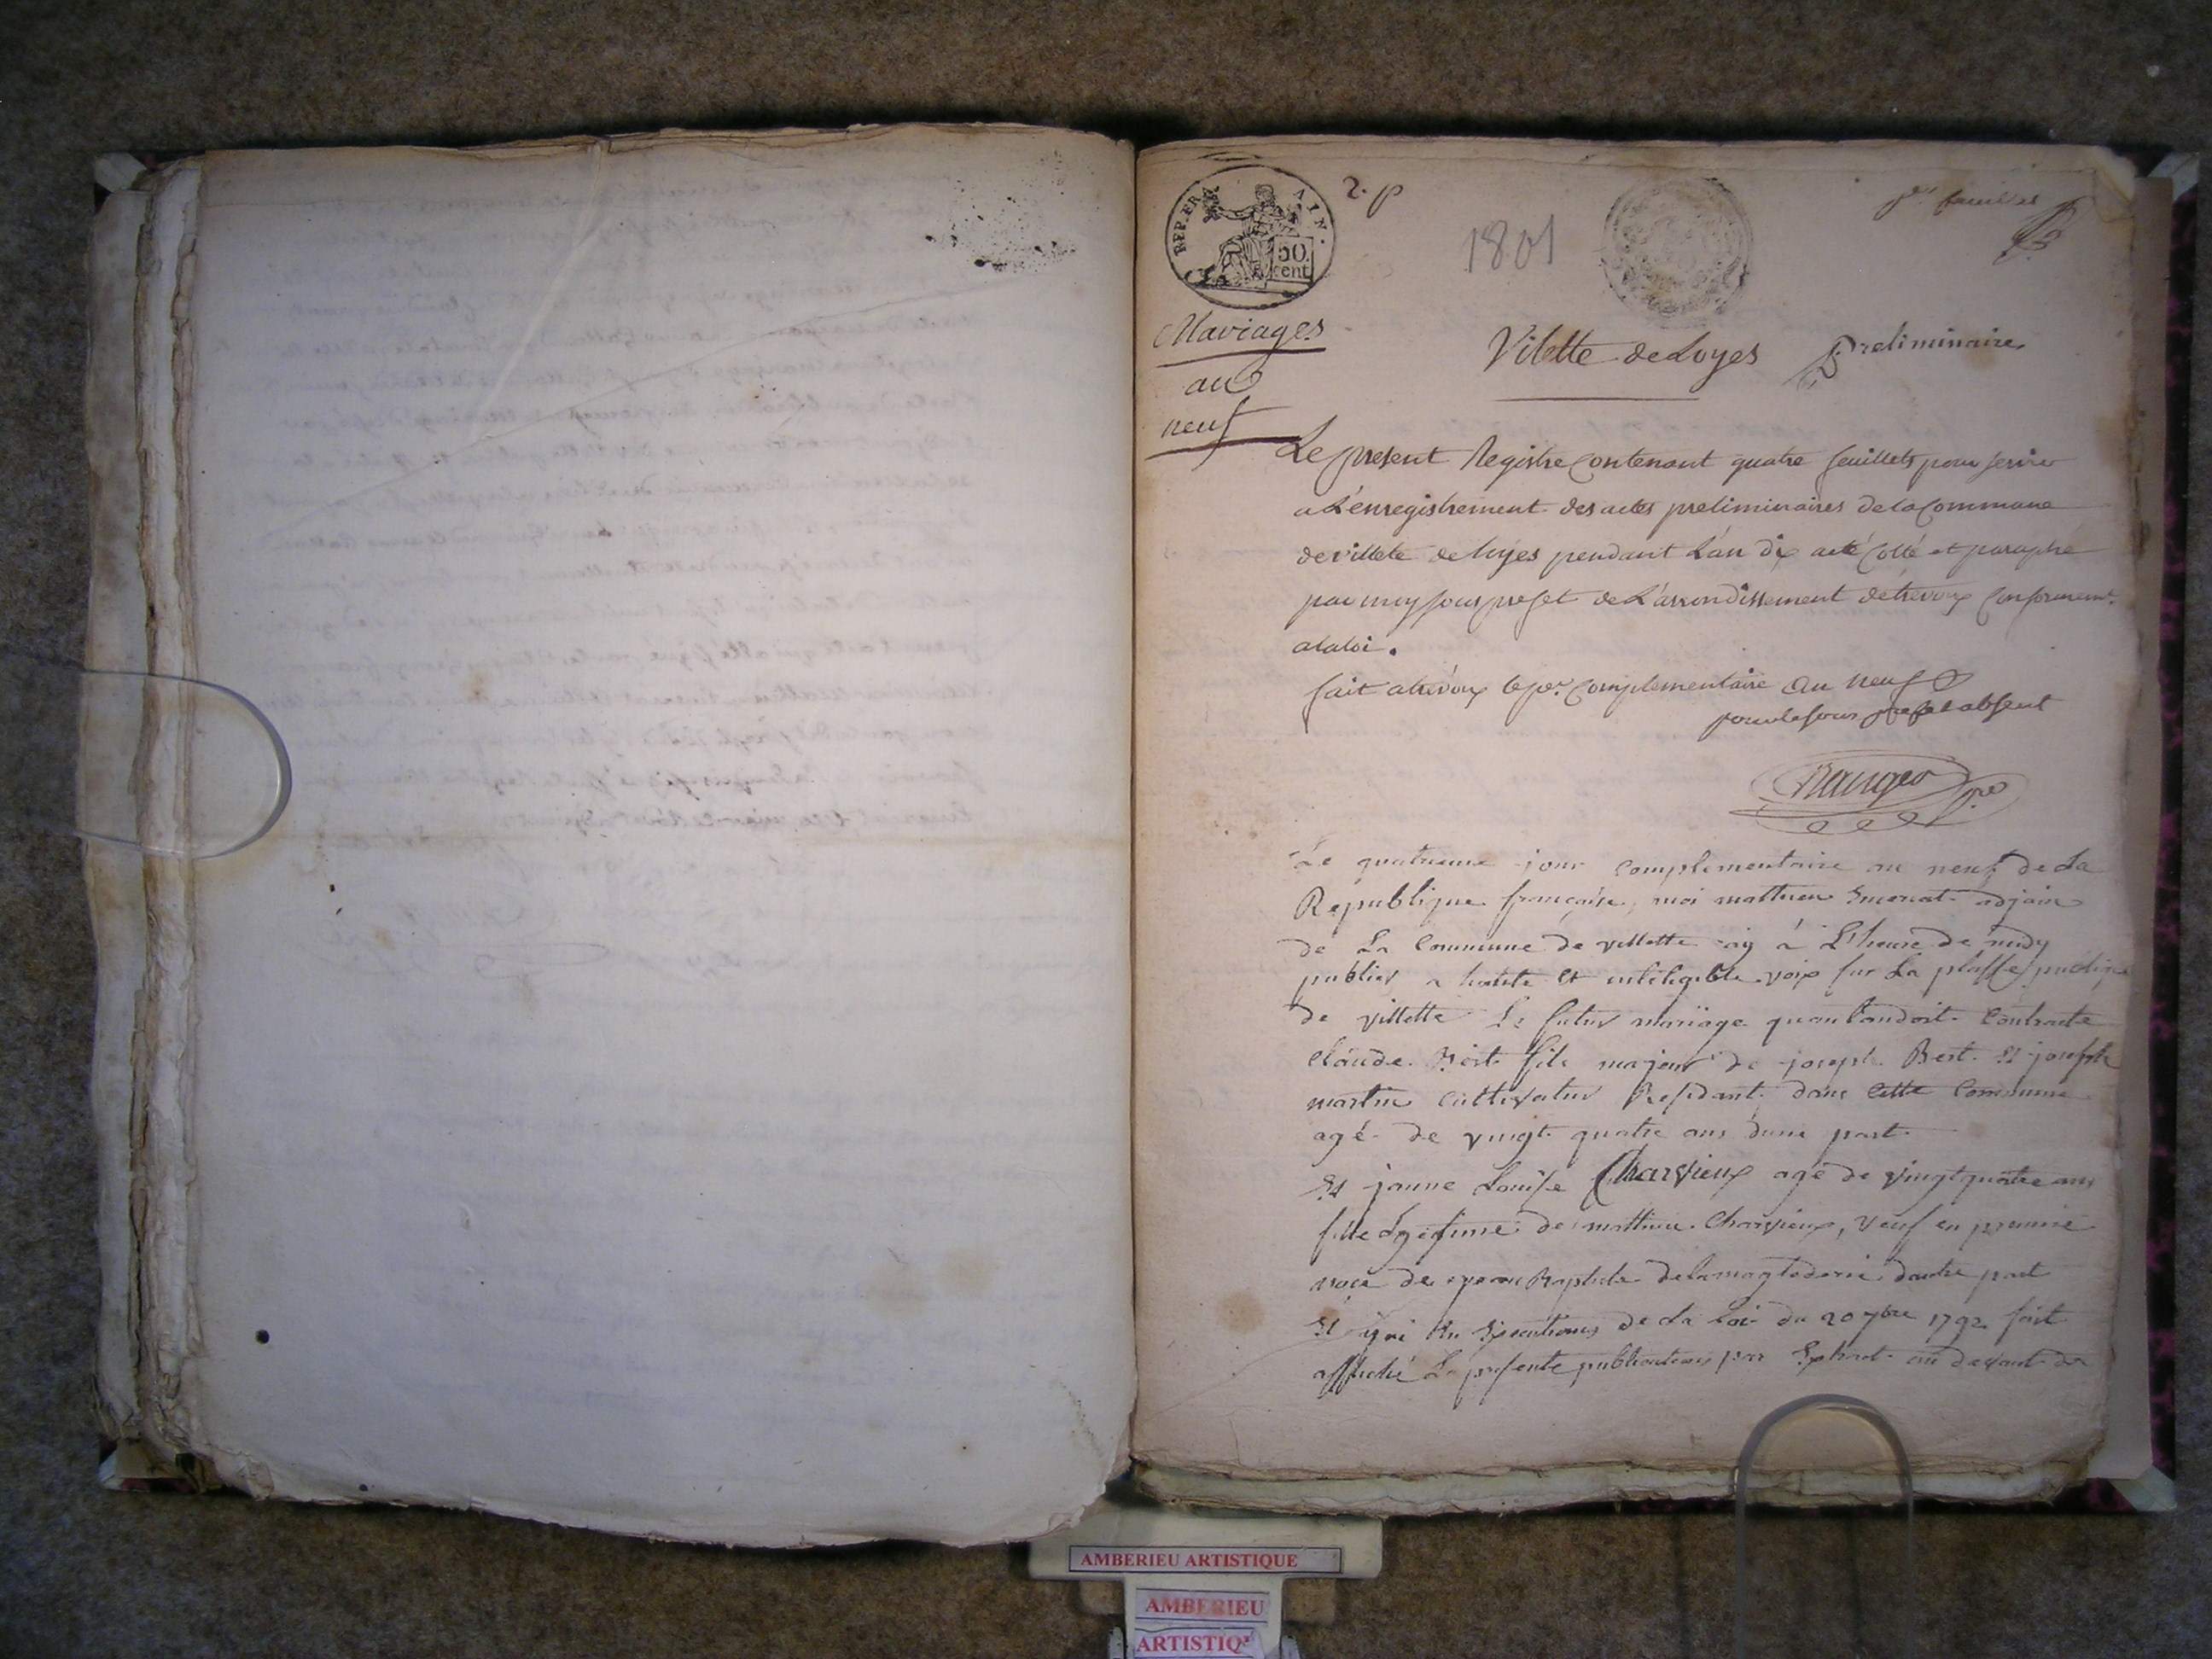 REP. FR. AIN.
50.
cent
2. p
1801
pr. feuillet
Mariages
an
neuf
Vilette de Loyes Preliminaire
Le present Registre Contenant quatre feuillets pour servir
a L'enregistrement des actes preliminaires de la Commune
de villete de loyes pendant L'an dix aeté Cotté et paraphé
par moy sous prefet de L'arrondissement de trevoux Conformemt.
a la loi.
fait a trevoux le per. Complementaire an neuf
pour le sous prefet absent
Le quatrieme jour Complementaire an neuf de La
Republique françaíse, moi mathieu adjoin
de La Commune de villette ay a L'heure de midy
publier a haute et inteligible voix sur La plasse publique
de villette Le futur mariage quantandoit Contracte
Claude Bert fils majeur de joseph Bert Et josephte
martin Cultivatur Residant dans Cette Commune
agé de vingt quatre ans dune part
Et janne Louise Charvieux agé de vingt quatre ans
fille Legitime de mathieu Charvieux, veuf en premiere
noce de Baptiste dautre part
Et La Loi du 20 7bre 1792 fait
affiché La presente publication par Extrait au devant de
AMBERIEU ARTISTIQUE
AMBERIEU
ARTISTIQ